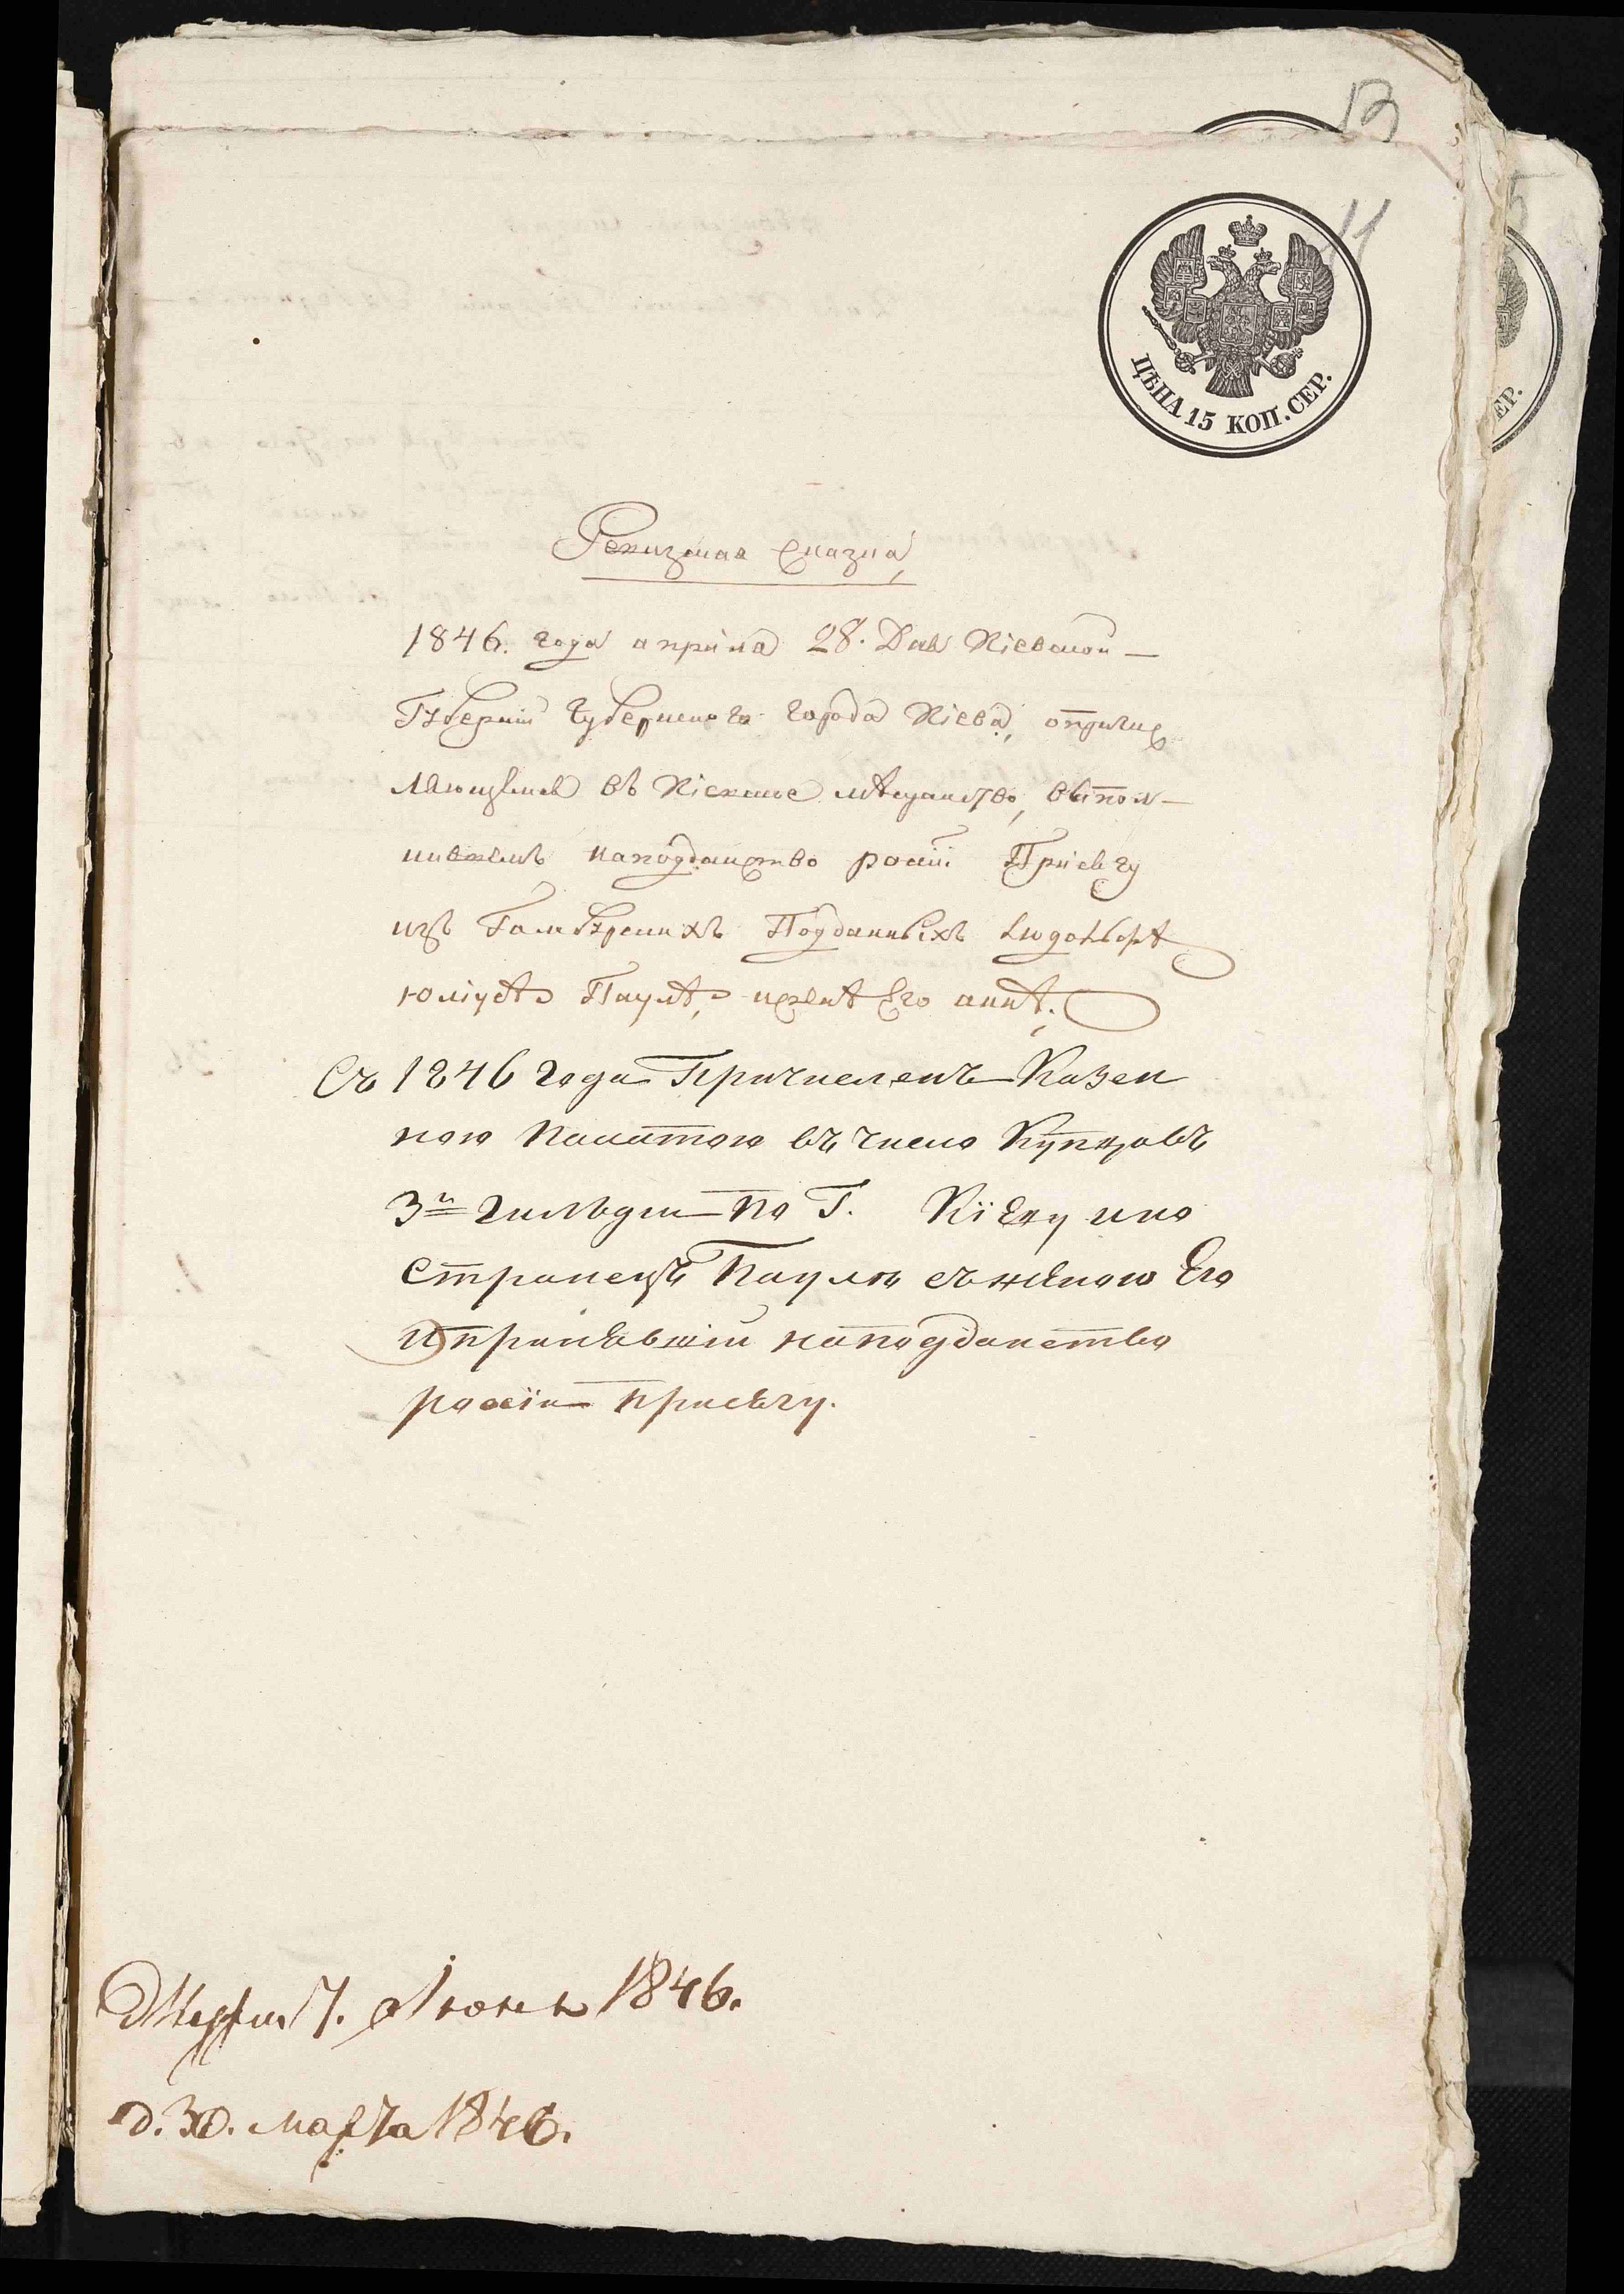 13
11
ЦѢНА 15 КОП. СЕР.
Ревизская Сказка,
1846. года апрѣля 28. Дня Кіевской —
Губерніи Губернскаго города Кіева, о причис
ляющемся въ Кіевское мѣщанство, выпол —
нившемъ наподданство росіи Присягу
изъ Гамбургскихъ Подданныхъ Людовигѣ
Юліусѣ Паулѣ, и женѣ Его аннѣ.
Съ 1846 года Причисленъ Казен
ною Палатою въ число Купцовъ
3й гильдіи по Г. Кіеву ино
странецъ Пауль съ женою Его
и принявшій наподданство
россіи присягу.
7. Іюня 1846.
д. 30. марта 1846.
ЕР.